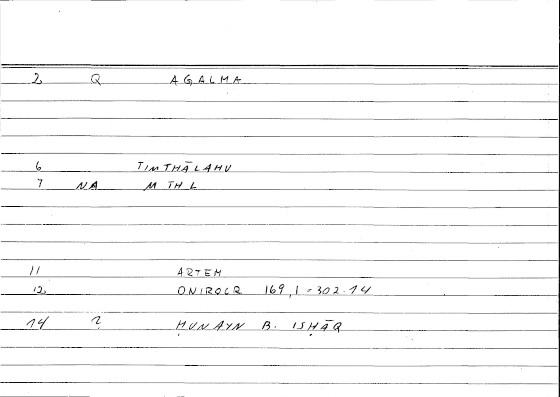 2 Q AGALMA
6 TIMTHĀLAHU
7 NA M TH L
11 ARTEM
12 ONIROCR 169,1 = 302.14
14 2 ḤUNAYN B. ISḤĀQ